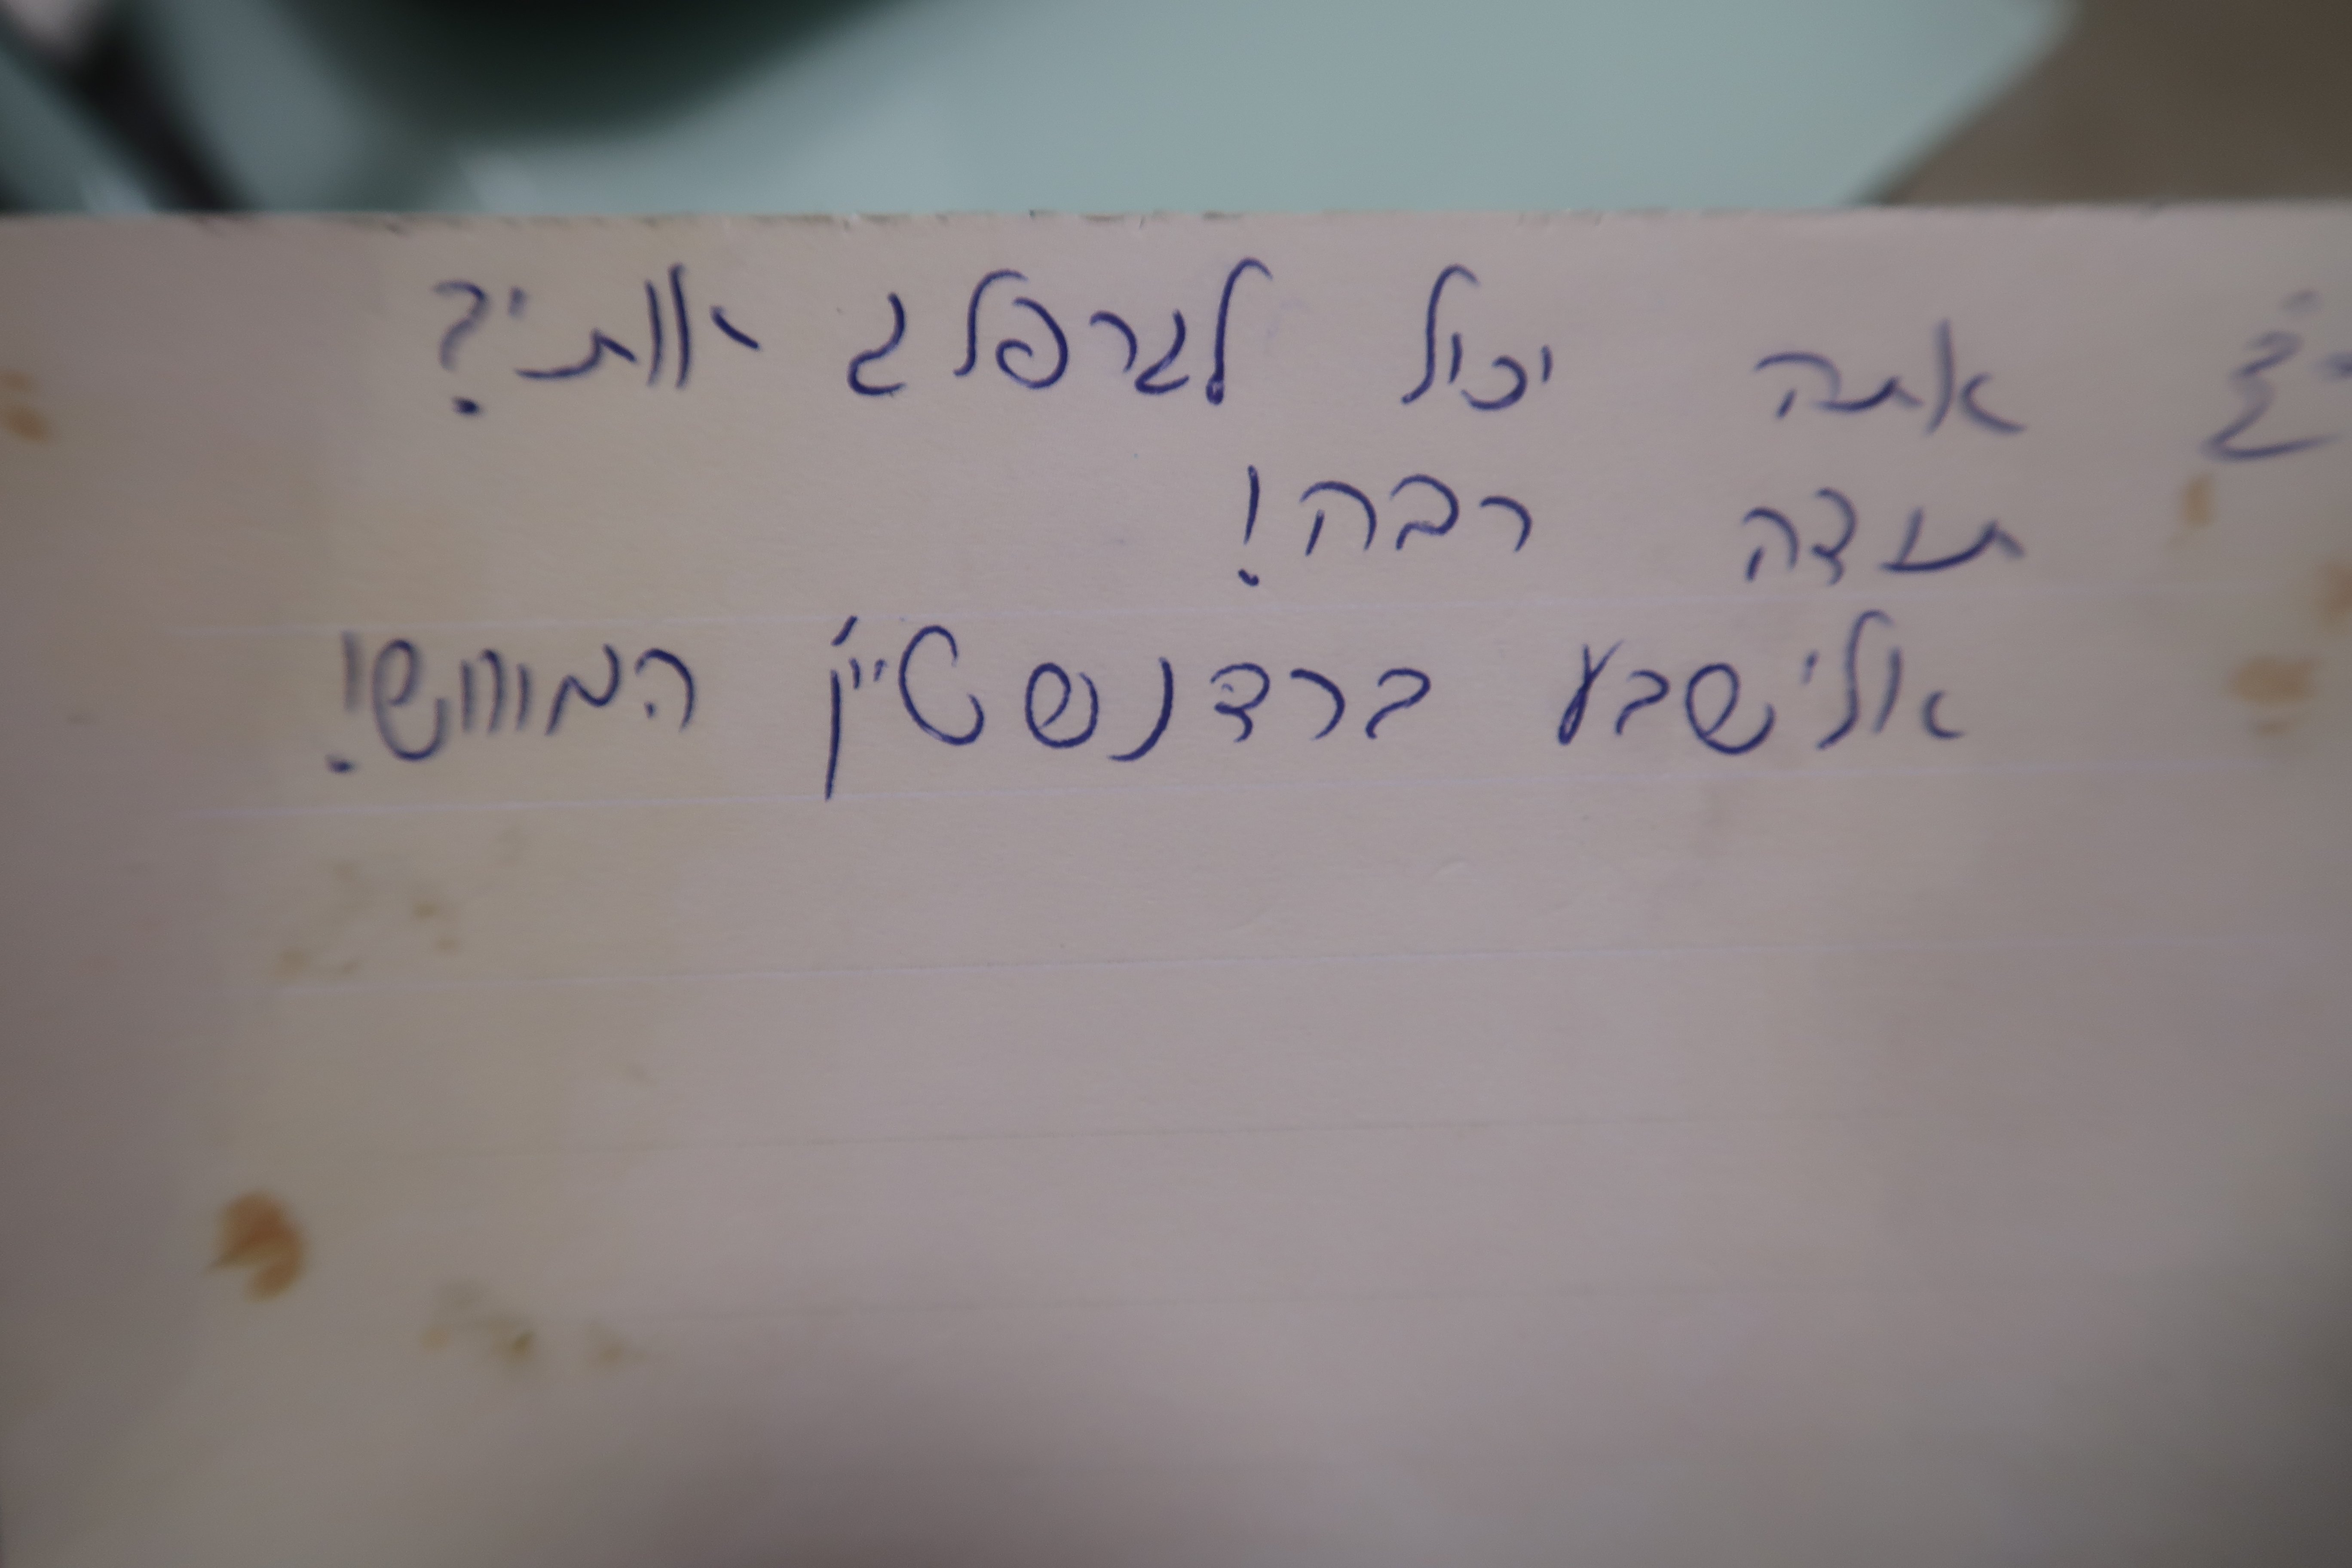 אתה יכול לגרפלג אותי?
תודה רבה!
אלישבע ברדנשטיין המווש!